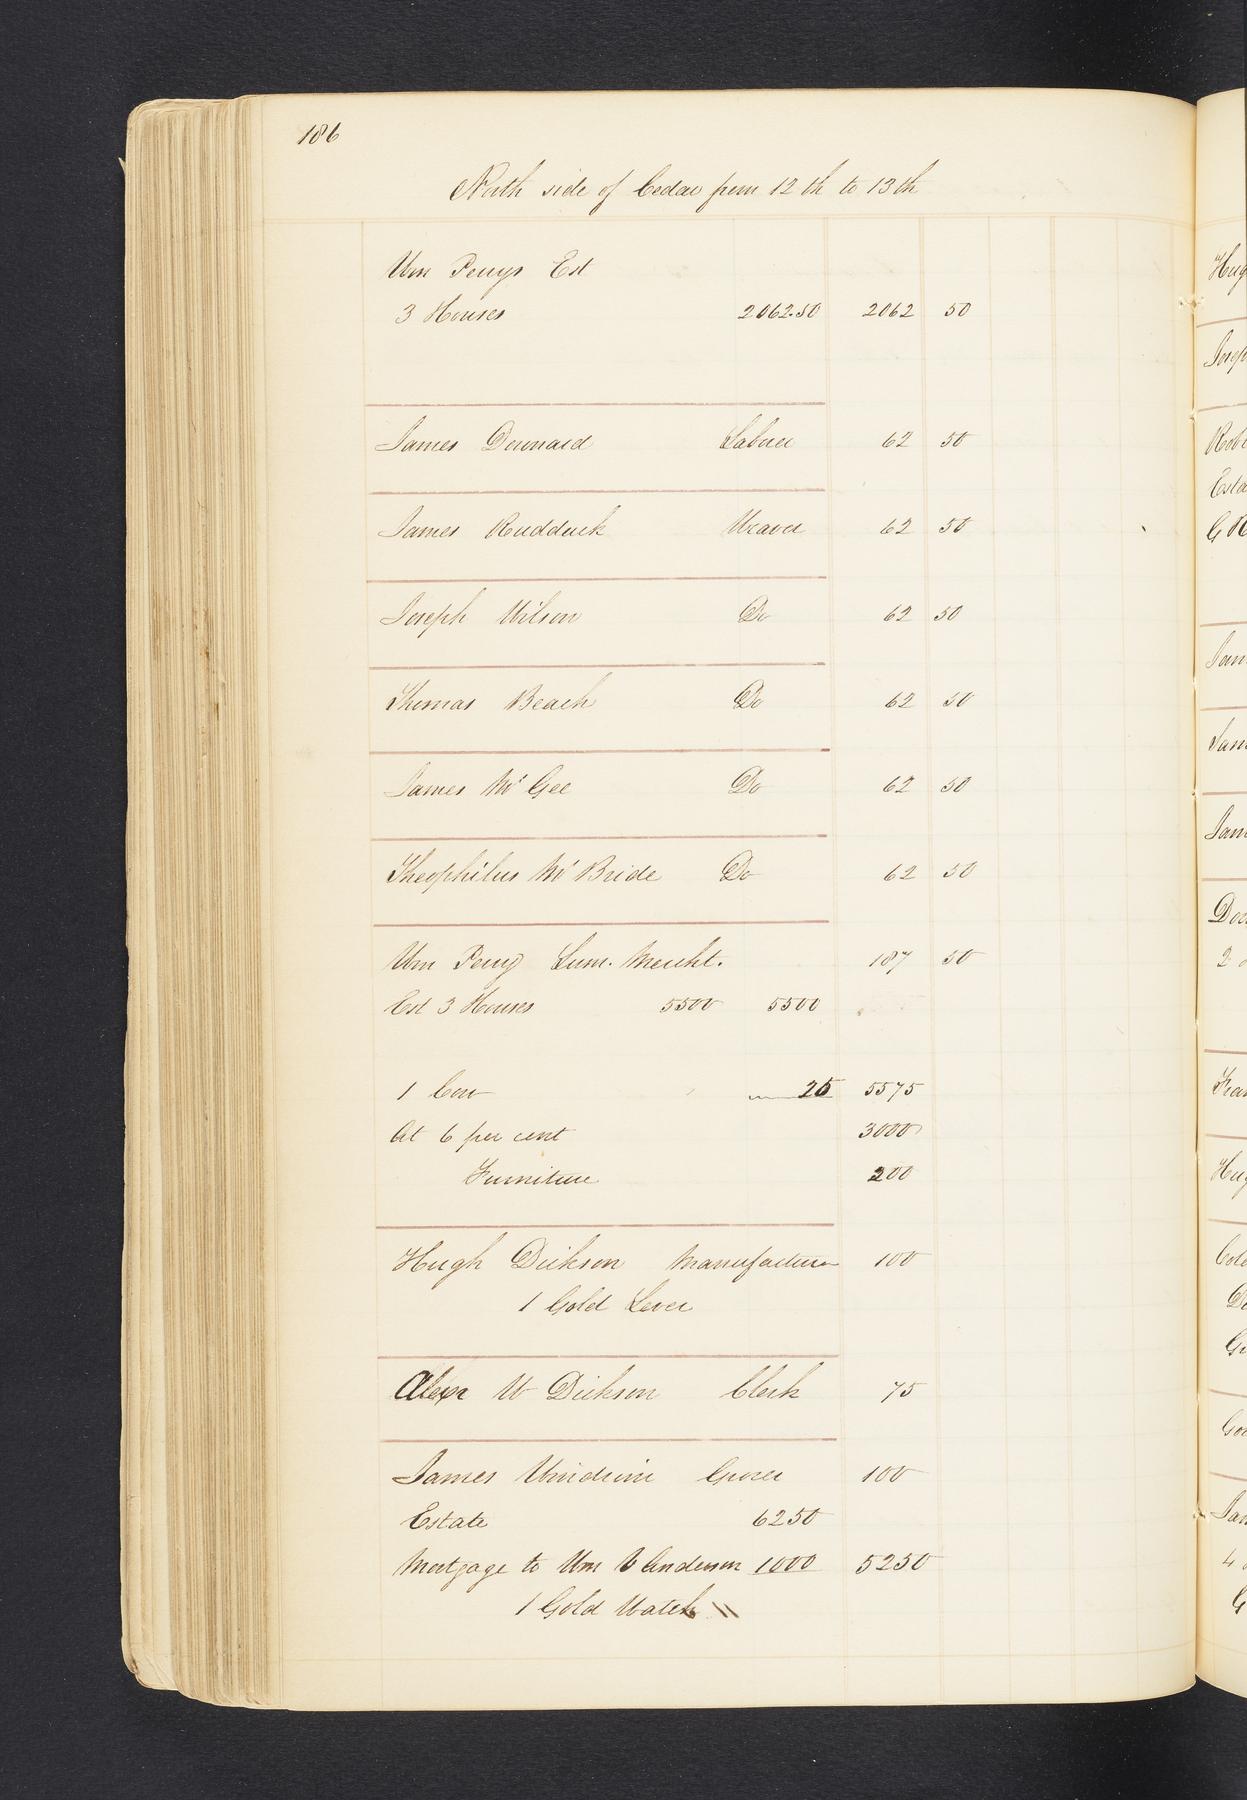 186
North side of Cedar from 12th to 13th
Wm Perrys Est
3 Houses 2062.50 2062 50
James Dennard Laborer 62 50
James Rudduck Weaver 62 50
Joseph Wilson Do 62 50
Thomas Beach Do 62 50
James Mc Gee Do 62 50
Theophilus Mc Bride Do 62 50
Wm Perry Lum. Mercht. 187 50
Est 3 Houses 5500 5500
1 Cow 25 5575
At 6 per cent 3000
Furniture 200
Hugh Dickson Manufacturer 100
1 Gold Lever
Alexr W Dickson Clerk 75
James Grocer 100
Estate 6250
Mortgage to Wm V Anderson 1000 5250
1 Gold Watch "